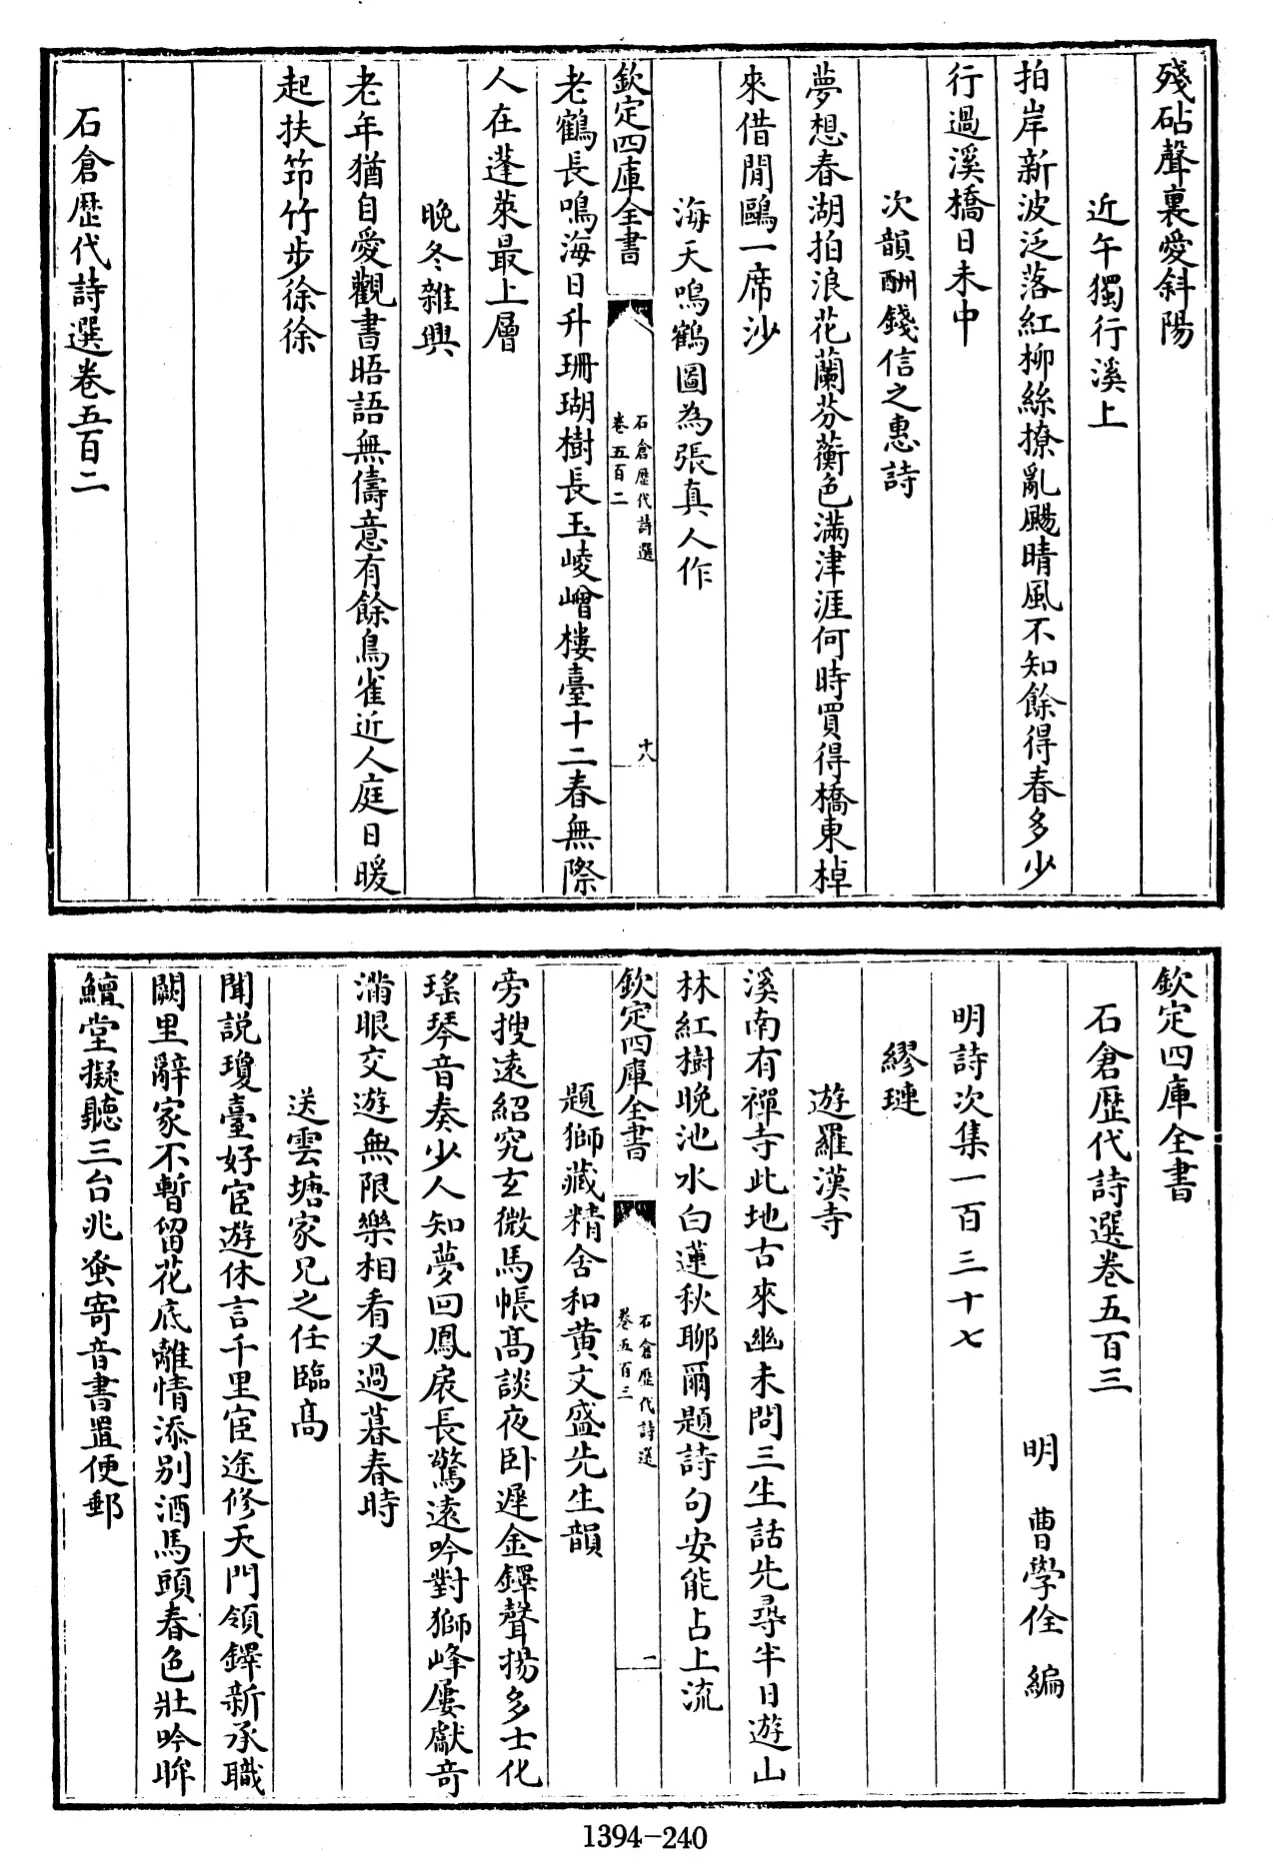 殘砧聲裏愛斜陽
近午獨行溪上
拍岸新波泛落紅柳絲撩亂颺晴風不知餘得春多少
行過溪橋日未中
次韻酬錢信之惠詩
夢想春湖拍浪花蘭芬蘅色滿津涯何時買得橋東棹
來借閒鷗一席沙
海天鳴鶴圖為張真人作
欽定四庫全書
石倉歷代詩選
卷五百二
十八
老鶴長鳴海日升珊瑚樹長玉崚嶒樓臺十二春無際
人在蓬萊最上層
晚冬雜興
老年猶自愛觀書晤語無儔意有餘鳥雀近人庭日暖
起扶笻竹步徐徐
石倉歷代詩選卷五百二
欽定四庫全書
石倉歷代詩選卷五百三
明 曹學佺 編
明詩次集一百三十七
繆璉
遊羅漢寺
溪南有禪寺此地古來幽未問三生話先尋半日遊山
林紅樹晚池水白蓮秋聊爾題詩句安能占上流
欽定四庫全書
石倉歷代詩選
卷五百三
一
題獅藏精舍和黄文盛先生韻
旁搜遠紹究玄微馬帳高談夜卧遲金鐸聲揚多士化
瑤琴音奏少人知夢回鳳扆長驚遠吟對獅峰屢獻奇
滿眼交遊無限樂相看又過暮春時
送雲塘家兄之任臨高
聞説瓊臺好宦遊休言千里宦途修天門領鐸新承職
闕里辭家不暫留花底離情添别酒馬頭春色壯吟眸
鱣堂擬聽三台兆蚤寄音書置便郵
1394-240